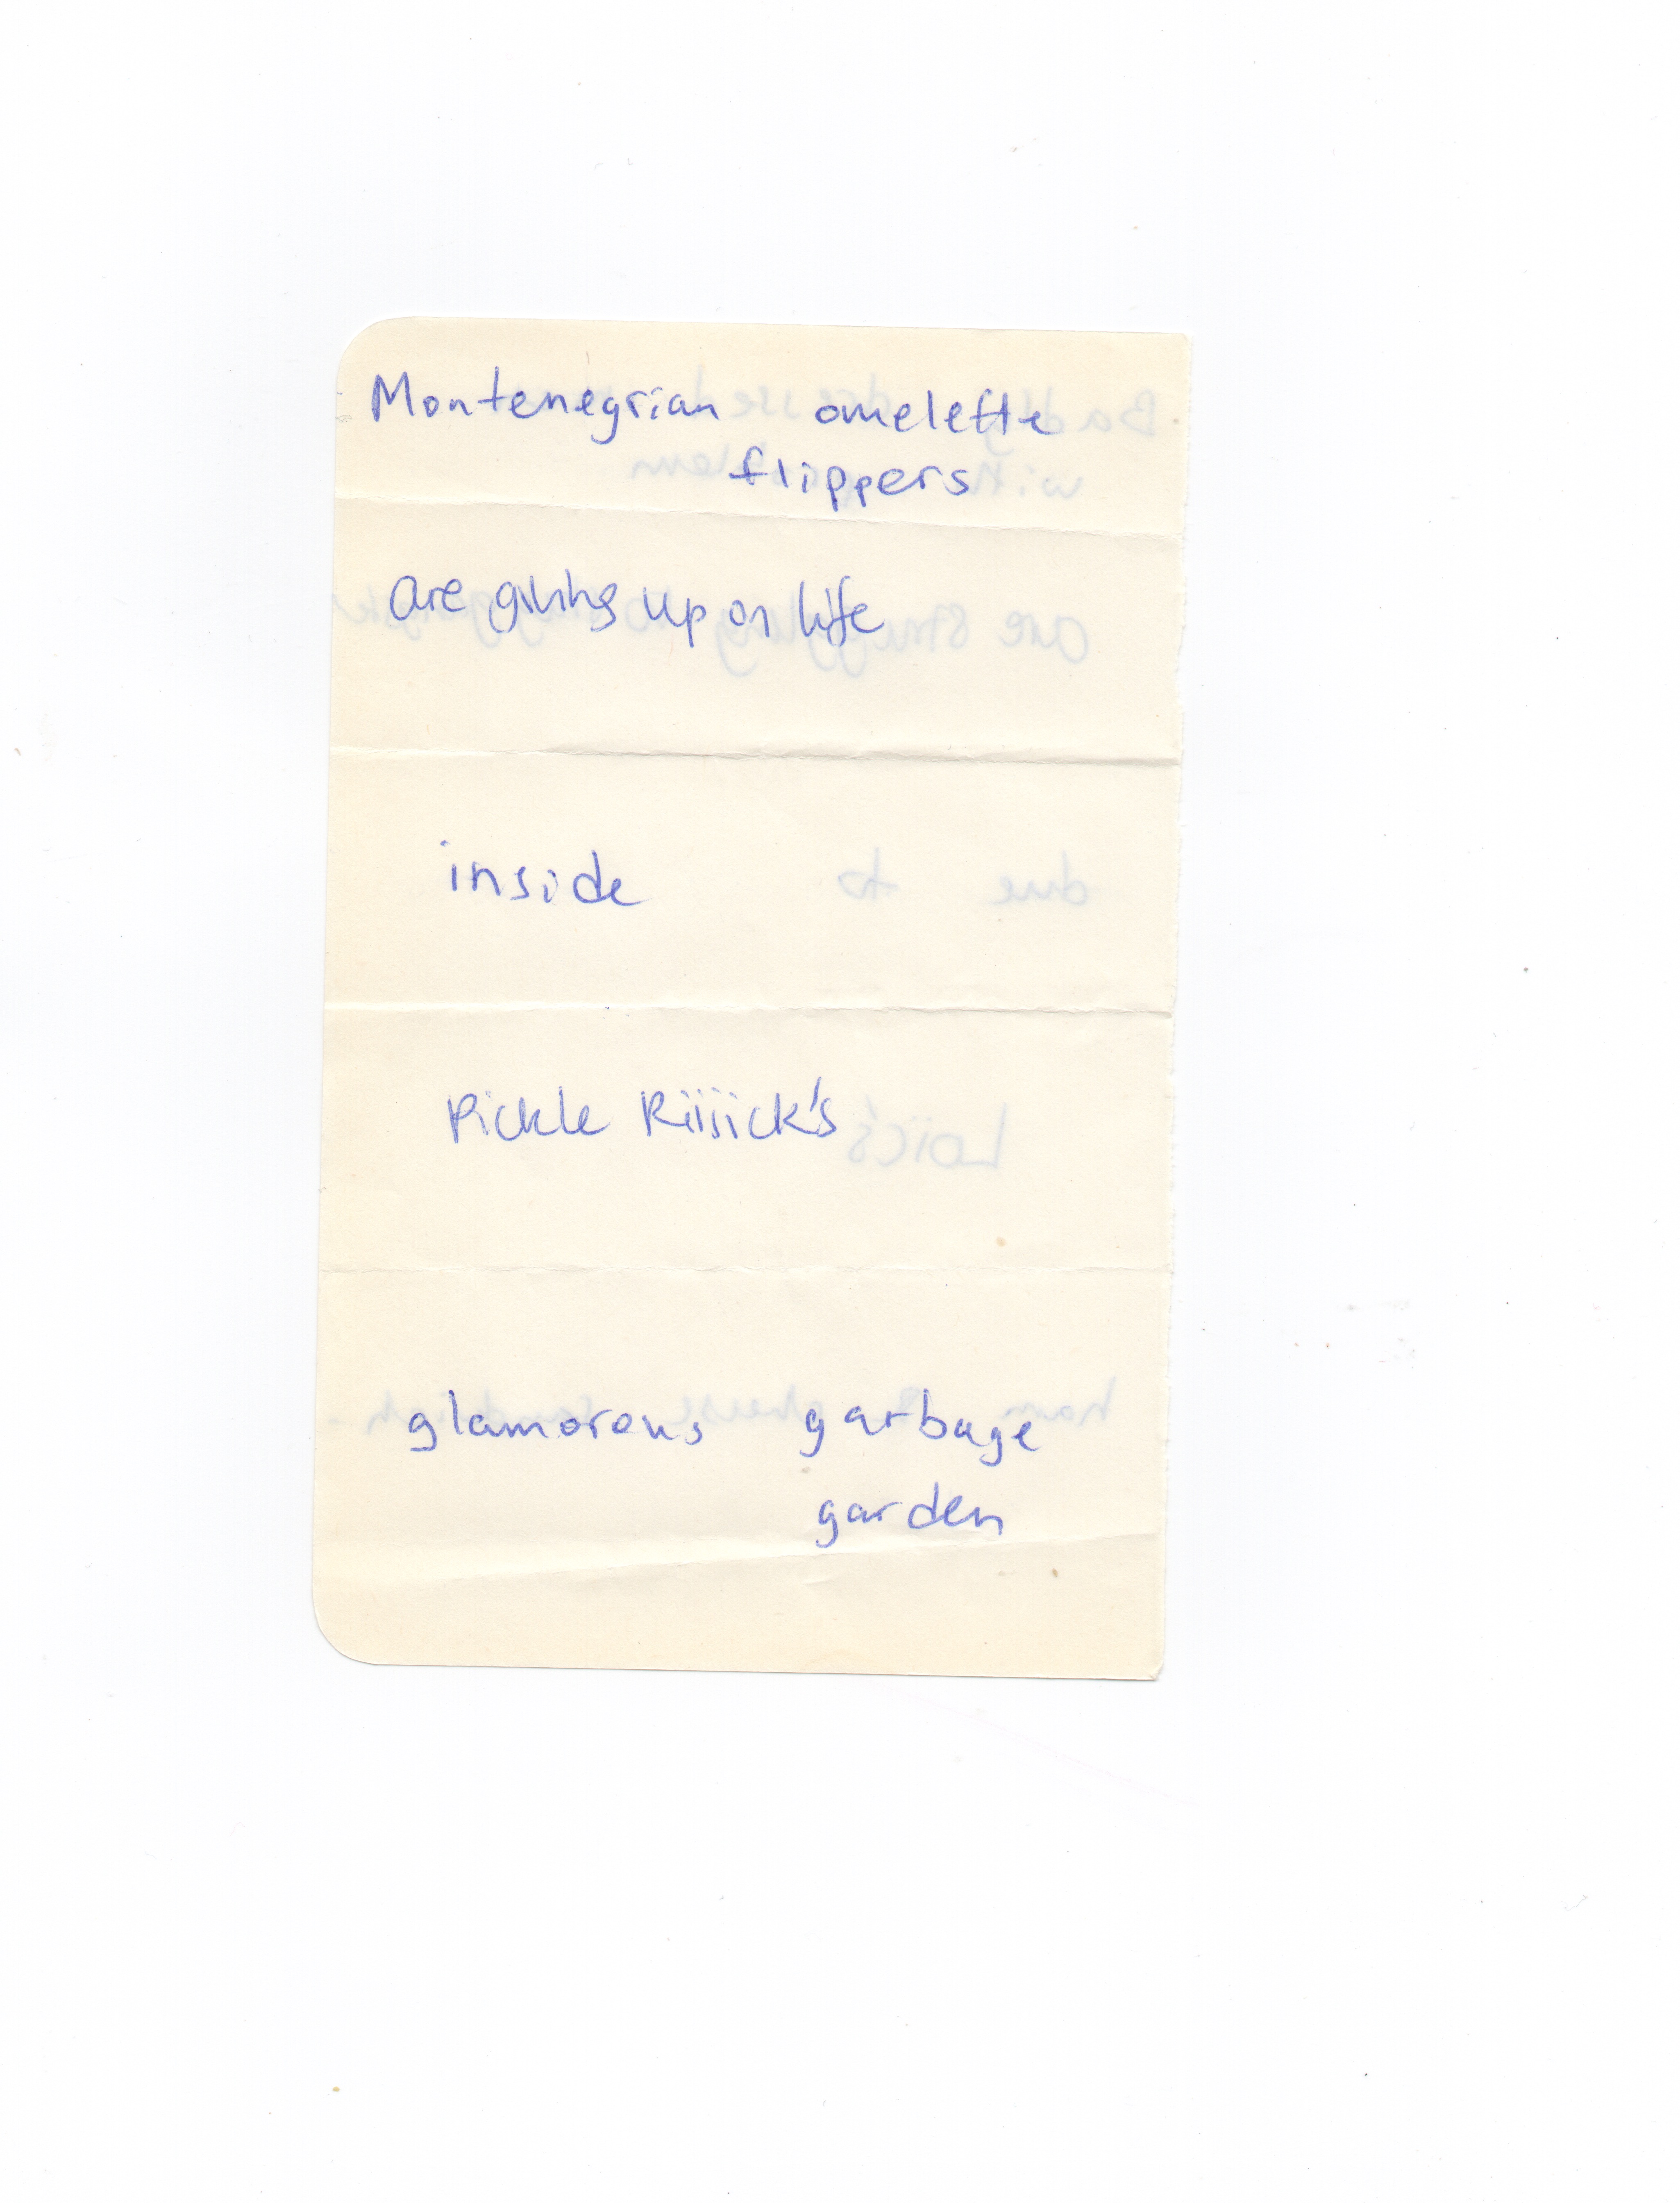 Montenegrian omelette
flippers
are giving up on life
inside
Pickle Riiiick's
glamorous garbage
garden